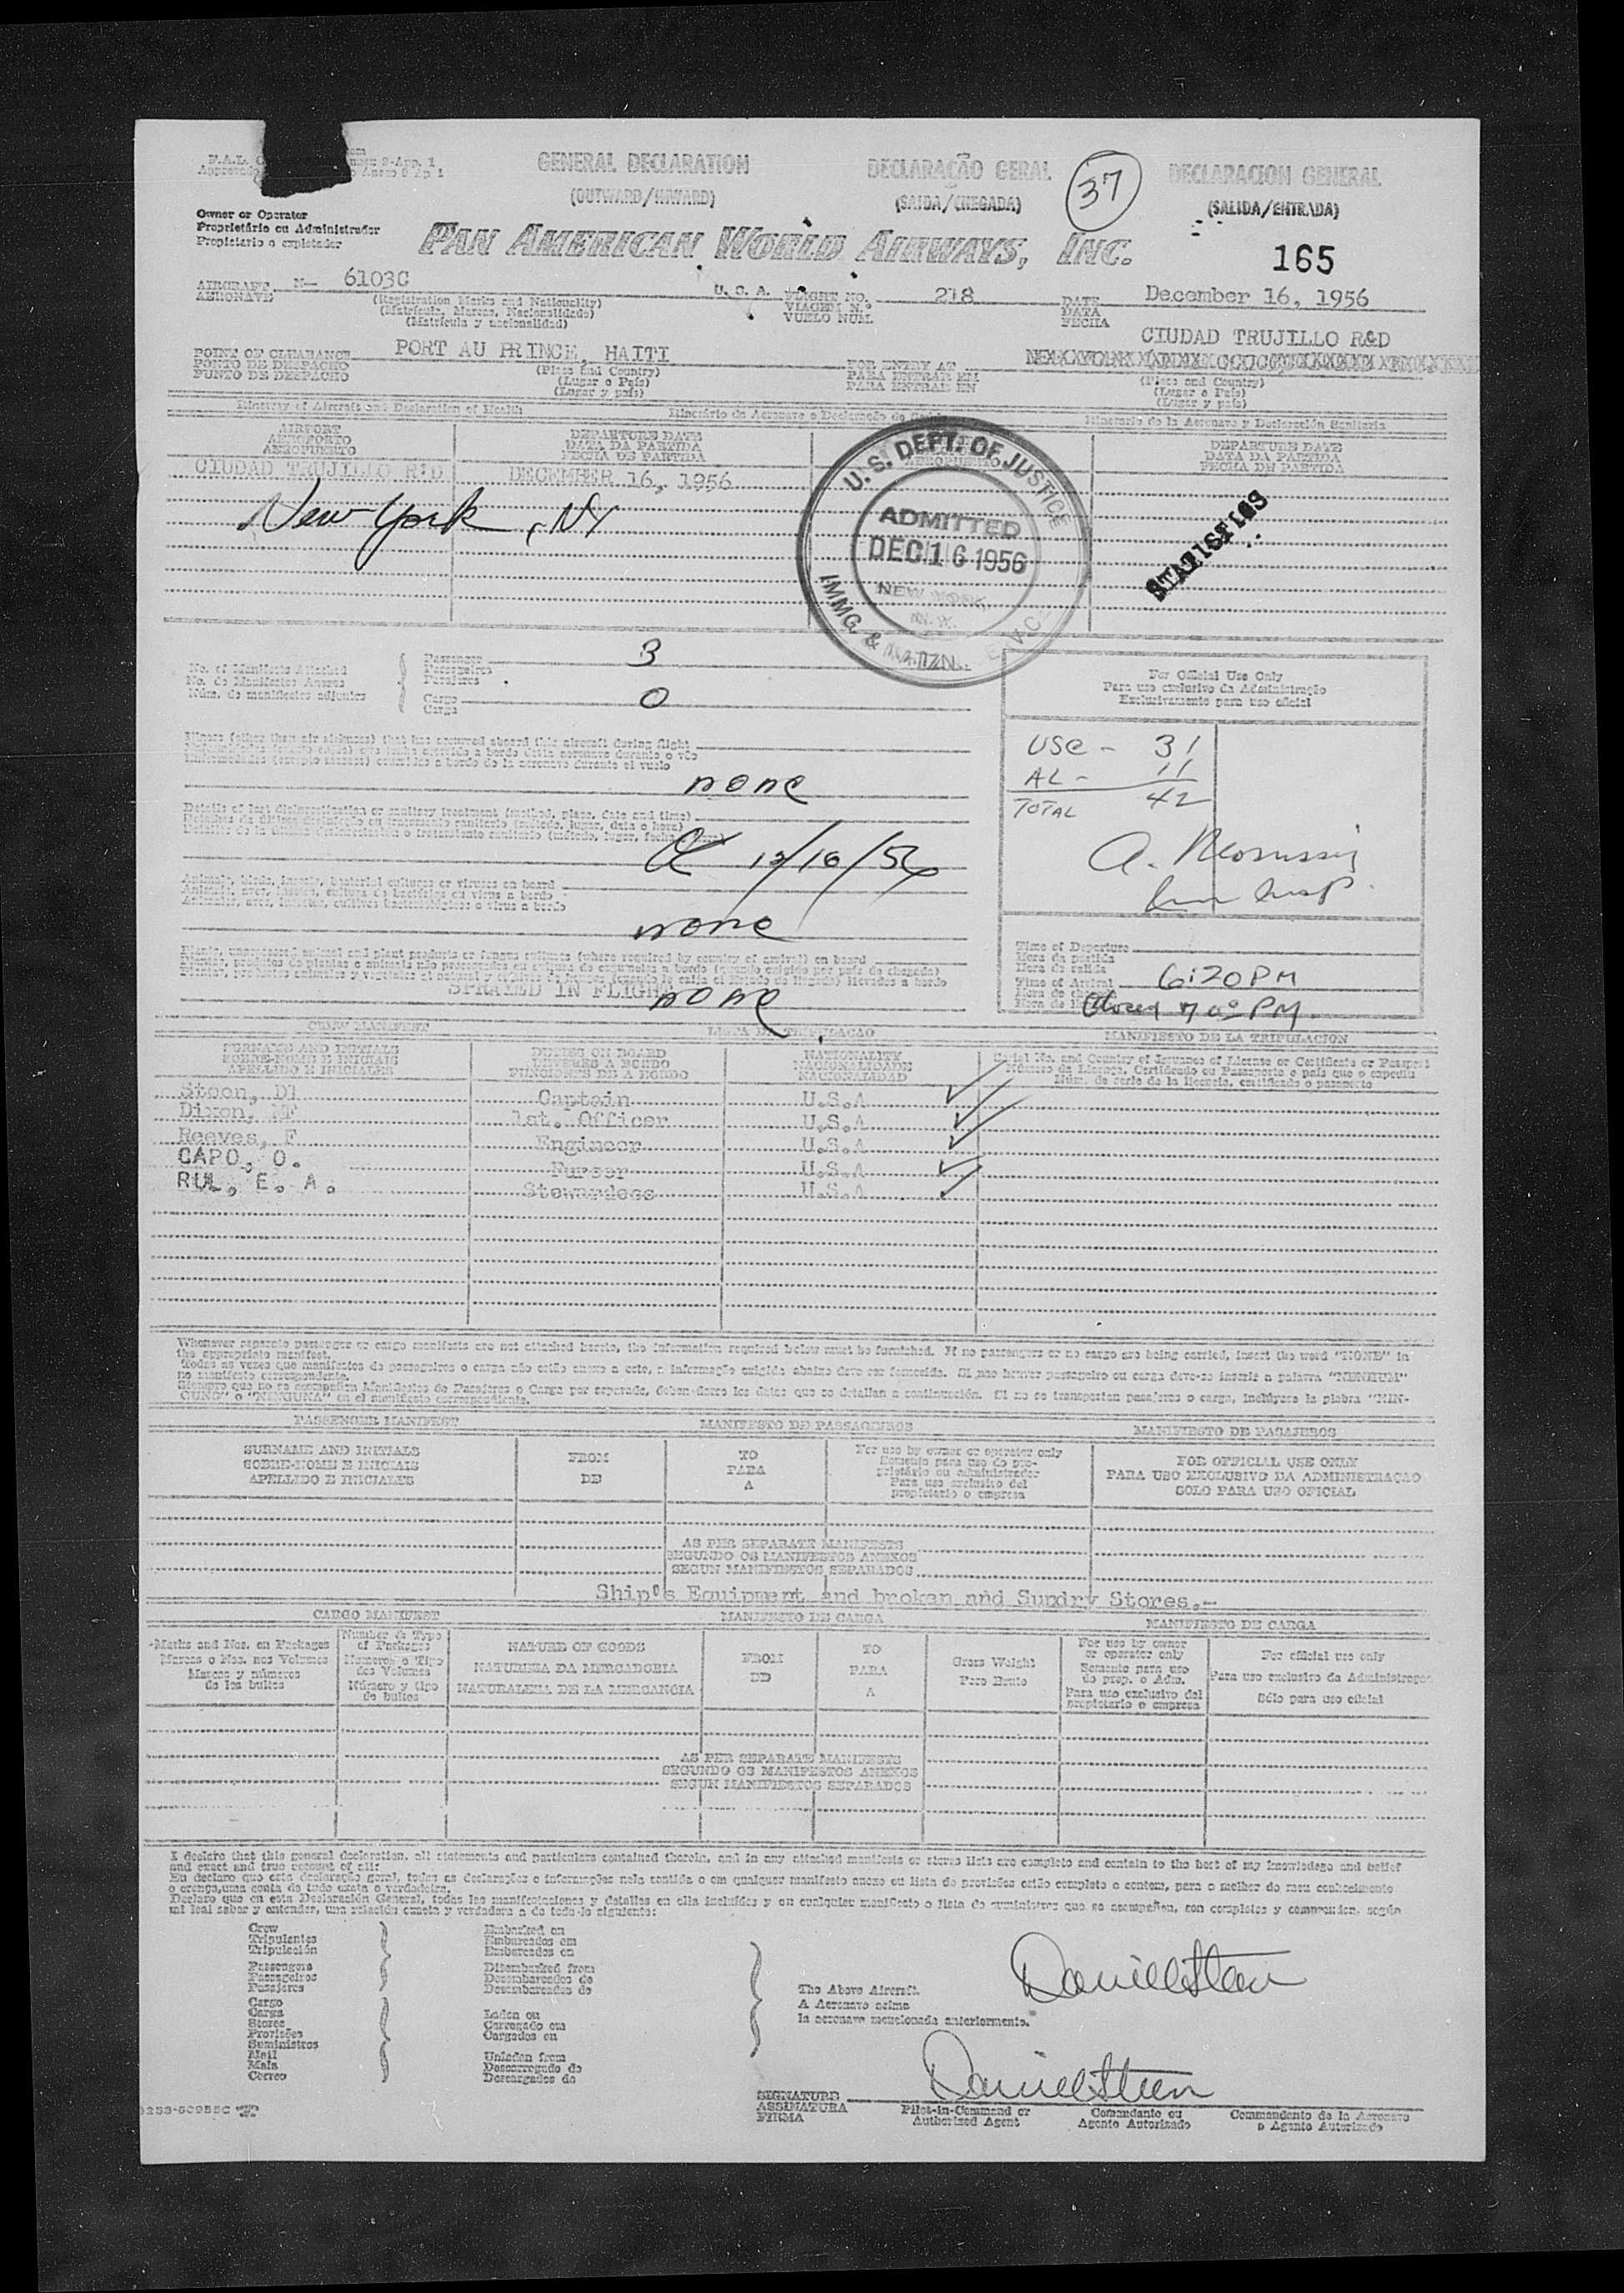 GENERAL DECLARATION
(OUTWARD/INWARD)
DECLARAÇÃO GERAL
(SAIDA/CHEGADA)
37
DECLARACION GENERAL
(SALIDA/ENTRADA)
Owner or Operator
Proprietário ou Administrador
Propietario o explotador
PAN AMERICAN WORLD AIRWAYS, INC.
165
AIRCRAFT N— 6103C U.S.A. FLIGHT NO. 218 DATE December 16, 1956
AERONAVE (Registration Marks and Nationality) VIAGEM N.º DATA
(Matrícula, Marcas, Nacionalidade) VUELO NUM. FECHA
(Matrícula y nacionalidad)
CIUDAD TRUJILLO R&D
POINT OF CLEARANCE PORT AU PRINCE, HAITI FOR ENTRY AT
PONTO DE DESPACHO (Place and Country) PARA ENTRAR EM (Place and Country)
PUNTO DE DESPACHO (Lugar e País) PARA ENTRAR EN (Lugar e País)
(Lugar y país) (Lugar y país)
Itinerary of Aircraft and Declaration of Health Itinerário da Aeronave e Declaração de Itinerario de la Aeronave y Declaración Sanitaria
AIRPORT DEPARTURE DATE DEPARTURE DATE
AEROPORTO DATA DA PARTIDA DATA DA PARTIDA
AEROPUERTO FECHA DE PARTIDA AEROPUERTO FECHA DE PARTIDA
CIUDAD TRUJILLO R&D DECEMBER 16, 1956
New York, NY
U.S. DEPT. OF JUSTICE
ADMITTED
DEC 16 1956
NEW YORK,
N.Y.
IMMG. & NATZN.
STATISTICS
No. of Manifests Attached Passenger 3
No. de Manifestos Anexos Passageiros
Núm. de manifiestos adjuntos Pasajeros
Cargo 0
Carga
For Official Use Only
Para uso exclusivo da Administração
Exclusivamente para uso oficial
USC - 31
AL - 11
TOTAL 42
Illness (other than air sickness) that has occurred aboard this aircraft during flight
none
Details of last disinsectization or sanitary treatment (method, place, date and time)
12/16/56
Animals, birds, insects, bacterial cultures or viruses on board
none
Plants, unprocessed animal and plant products or fungus cultures (where required by country of arrival) on board
SPRAYED IN FLIGHT none
Time of Departure
Hora da partida
Hora de salida
Time of Arrival 6:20 PM
7 00 PM.
CREW MANIFEST LISTA DA TRIPULAÇAO MANIFIESTO DE LA TRIPULACION
SURNAME AND INITIALS DUTIES ON BOARD NATIONALITY Serial No. and Country of Issuance of License or Certificate or Passport
SOBRE-NOME E INICIAIS FUNÇÕES A BORDO NACIONALIDADE Número da Licença, Certificado ou Passaporte e país que o expediu
APELLIDO E INICIALES FUNCIONES DE A BORDO NACIONALIDAD Núm. de serie de la licencia, certificado o pasaporte
Steen, DI Captain U.S.A
Dixon, 1st. Officer U.S.A
Reeves, F Engineer U.S.A
CAPO, O. Purser U.S.A
RUL, E. A. Stewardess U.S.A
Whenever separate passenger or cargo manifests are not attached hereto, the information required below must be furnished. If no passengers or no cargo are being carried, insert the word "NONE" in
the appropriate manifest.
Todas as vezes que manifestos de passageiros o carga não estão anexo a este, a informação exigida abaixo deve ser fornecida. Si não houver passageiro ou carga deve-se inserir a palavra "NENHUM"
no manifesto correspondente.
Siempre que no se acompañen Manifiestos de Pasajeros o Carga por separado, deben darse los datos que se detallan a continuación. Si no se transportan pasajeros o carga, inclúyase la plabra "NIN-
GUNO" o "NINGUNA" en el manifiesto correspondiente.
PASSENGER MANIFEST MANIFESTO DE PASSAGEIROS MANIFIESTO DE PASAJEROS
SURNAME AND INITIALS FROM TO For use by owner or operator only FOR OFFICIAL USE ONLY
SOBRE-NOME E INICIAIS PARA Somente para uso do pro- PARA USO EXCLUSIVO DA ADMINISTRAÇAO
APELLIDO E INICIALES DE A prietário ou administrador SOLO PARA USO OFICIAL
Para uso exclusivo del
propietario o empresa
AS PER SEPARATE MANIFESTS
SEGUNDO OS MANIFESTOS ANEXOS
SEGUN MANIFIESTOS SEPARADOS
Ship's Equipment and broken and Sundry Stores.-
CARGO MANIFEST MANIFESTO DE CARGA MANIFIESTO DE CARGA
Marks and Nos. on Packages Number & Type of Packages NATURE OF GOODS FROM TO Gross Weight For use by owner or operator only For official use only
Marcas e Nos. nos Volumes Numeros e Tipo dos Volumes NATUREZA DA MERCADORIA DE PARA Peso Bruto Somente para uso do prop. o Adm. Para uso exclusivo da Administração
Marcas y números de los bultos Número y tipo de bultos NATURALEZA DE LA MERCANCIA A Para uso exclusivo del propietario o empresa Sólo para uso oficial
AS PER SEPARATE MANIFESTS
SEGUNDO OS MANIFESTOS ANEXOS
SEGUN MANIFIESTOS SEPARADOS
I declare that this general declaration, all statements and particulars contained therein, and in any attached manifests or stores lists are complete and contain to the best of my knowledge and belief
and exact and true account of all:
Eu declaro que esta declaração geral, todas as declarações e informações nela contida o em qualquer manifesto anexo ou lista de provisões estão completo e contem, para o melhor do meu conhecimento
e crença, uma conta de tudo exata e verdadeira.
Declaro que en esta Declaración General, todas las manifestaciones y detalles en ella incluídos y en cualquier manifiesto o lista de suministros que se acompañen, son completos y comprenden, según
mi leal saber y entender, una relación exacta y verdadera a de todo lo siguiente:
Crew Embarked on
Tripulantes Embarcados em
Tripulación Embarcados en
Passengers Disembarked from
Passageiros Desembarcados de
Pasajeros Desembarcados de
Cargo
Carga Laden on
Stores Carregado em
Provisões Cargados en
Suministros
Mail Unladen from
Mala Descarregado de
Correo Descargados de
The Above Aircraft.
A Aeronave acima
la aeronave mencionada anteriormente.
Daniel Steen
Daniel Steen
SIGNATURE
ASSINATURA
FIRMA
Pilot-in-Command or Authorized Agent
Comandante ou Agente Autorizado
Commandante de la Aeronave o Agente Autorizado